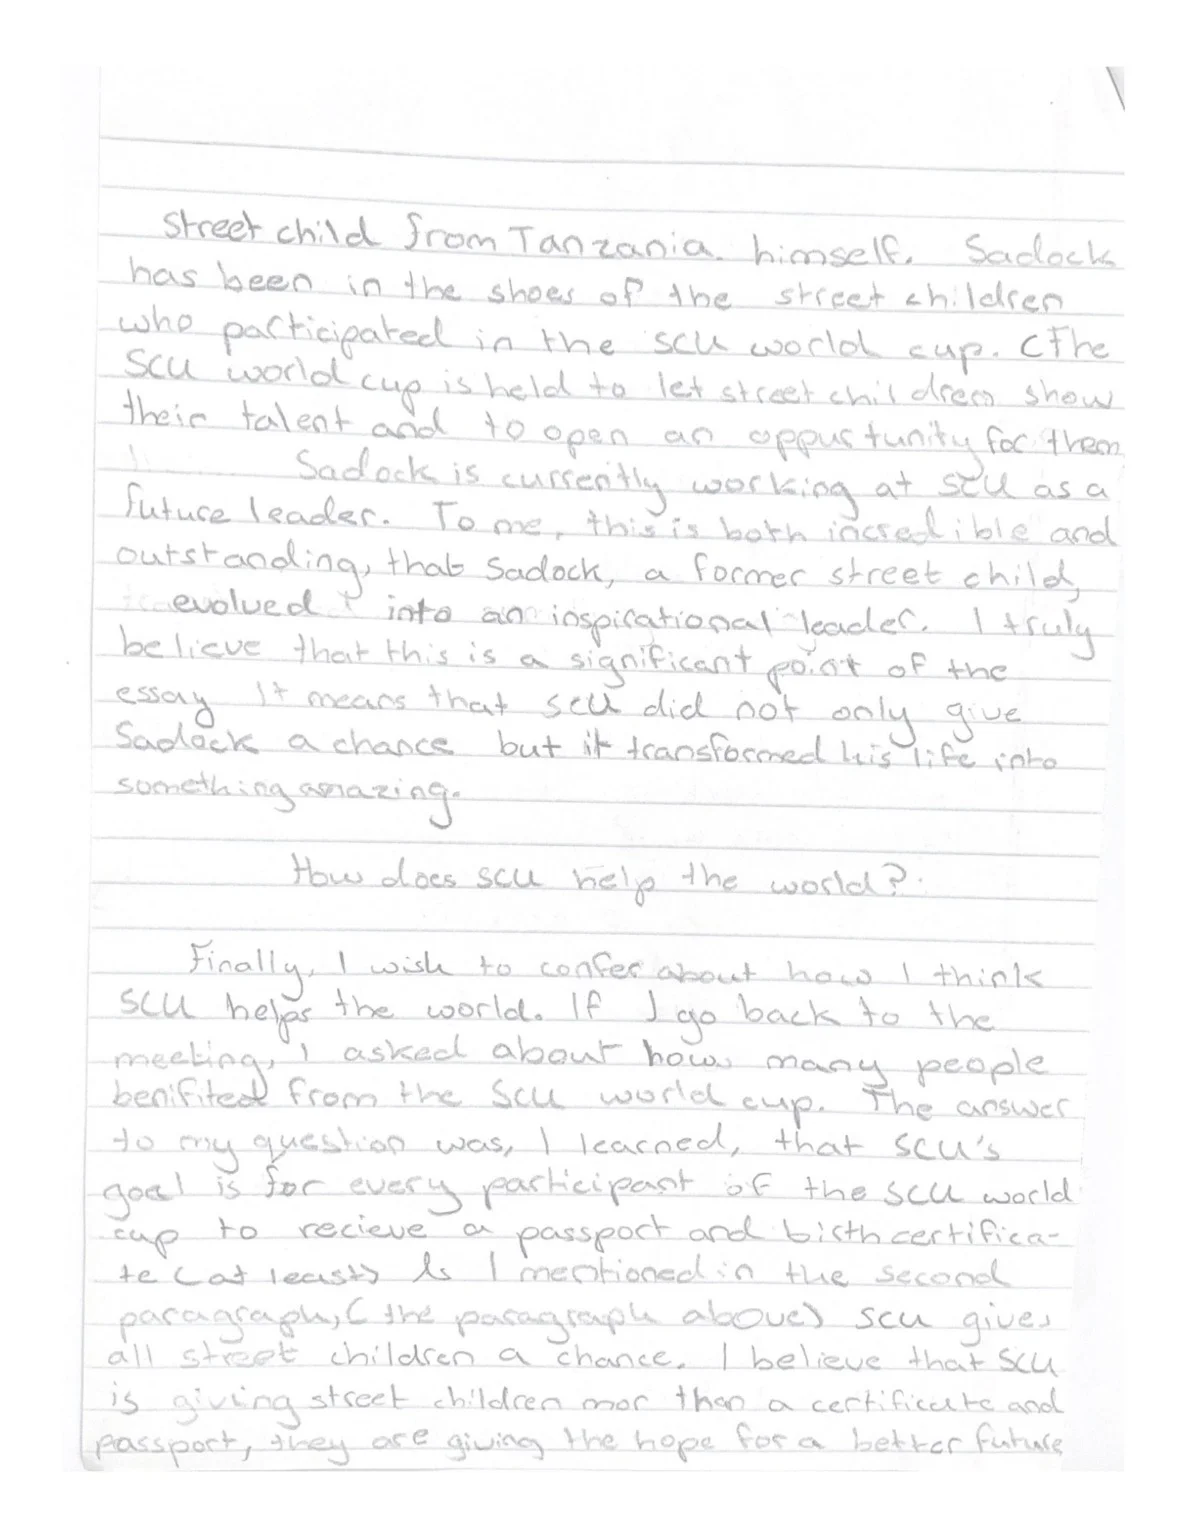 Street child from Tanzania himself. Sadock
has been in the shoes of the street children
who participated in the SCU world cup. (The
SCU world cup is held to let street children show
their talent and to open an oppustunity for them
Sadock is currently working at SCU as a
future leader. To me, this is both incredible and
outstanding, that Sadock, a former street child,
evolved into an inspirational leader. I truly
believe that this is a significant point of the
essay It means that SCU did not only give
Sadock a chance but it transformed his life into
something amazing.
How does SCU help the world?
Finally, I wish to confer about how I think
SCU helps the world. If I go back to the
meeting, I asked about how many people
benifited from the SCU world cup. The answer
to my question was, I learned, that SCU's
goal is for every participant of the SCU world
cup to recieve a passport and birth certifica-
te (at least) As I mentioned in the second
paragraph, (the paragraph above) SCU gives
all street children a chance. I believe that SCU
is giving street children mor than a certificate and
passport, they are giving the hope for a better future